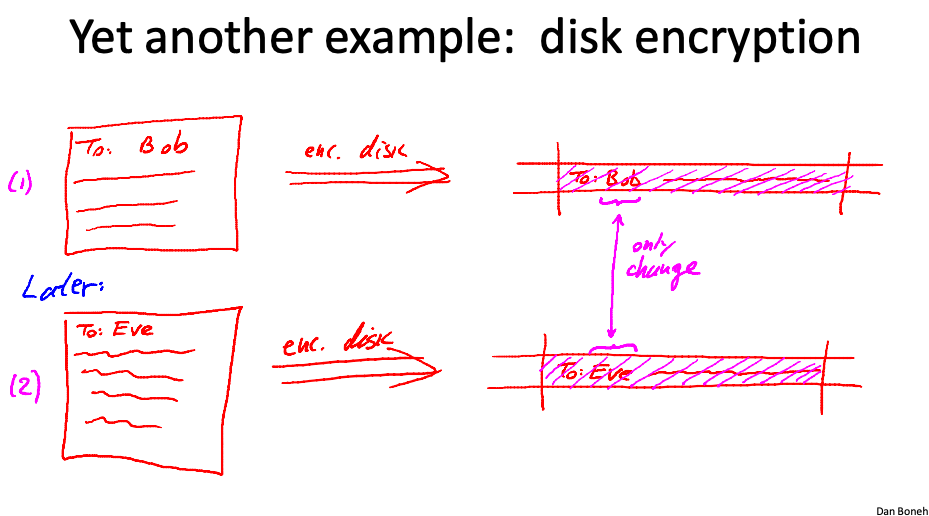 Yet another example: disk encryption
(1)
To: Bob
enc. disk
To: Bob
only
change
Later:
(2)
To: Eve
enc. disk
To: Eve
Dan Boneh